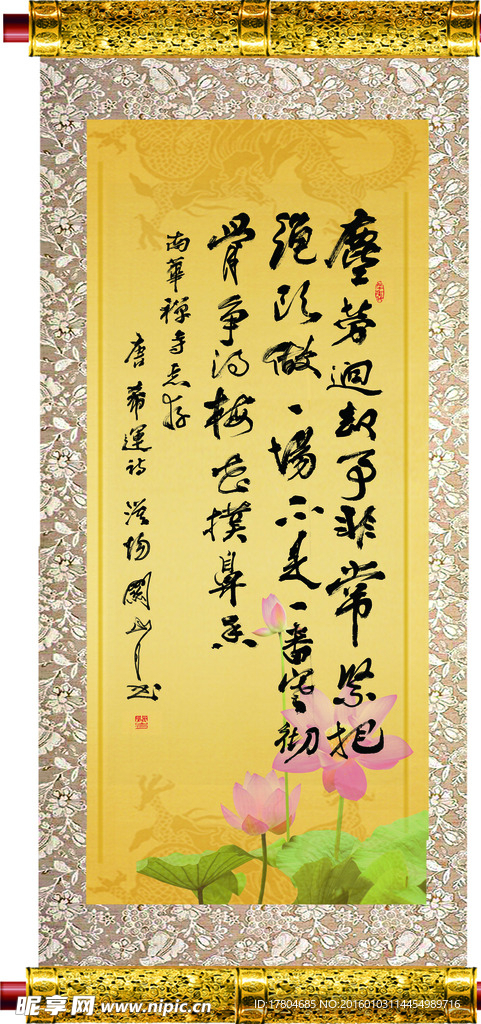 塵勞迥脫事非常緊把
繩頭做一場不是一番寒徹
骨爭得梅花撲鼻香
南華禪寺惠存
唐 希運詩 漠陽 關山月書
昵享网 www.nipic.cn
ID:17804685 NO:20160103114454989716